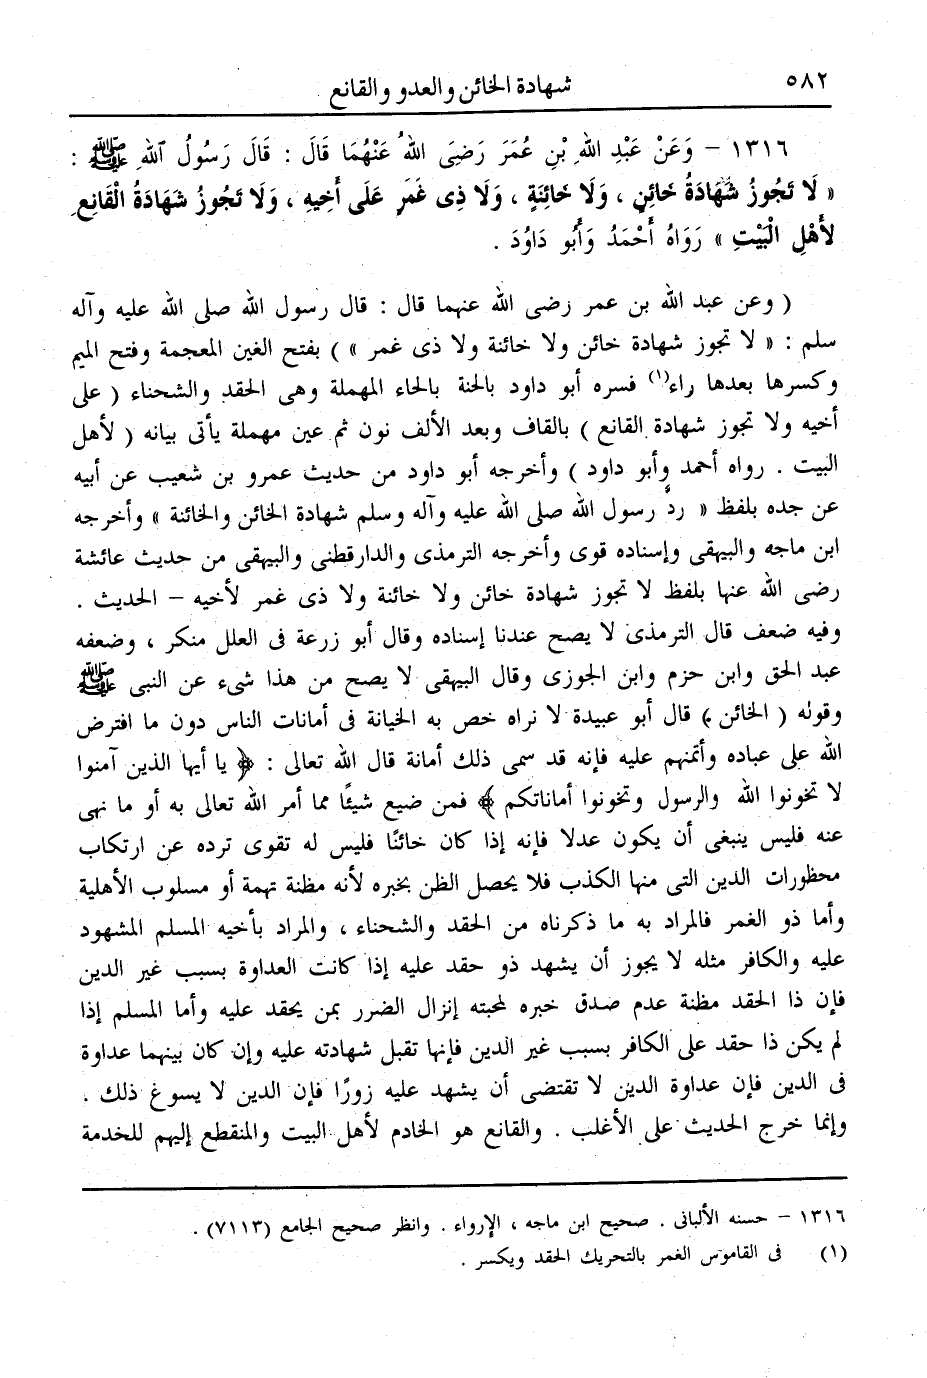 ٥٨٢
شهادة الخائن والعدو والقانع
١٣١٦ – وَعَنْ عَبْدِ اللهِ بْنِ عُمَرَ رَضِىَ اللهُ عَنْهُمَا قَالَ : قَالَ رَسُولُ اللهِ ﷺ :
« لَا تَجُوزُ شَهَادَةُ خَائِنٍ ، وَلَا خَائِنَةٍ ، وَلَا ذِى غَمَرٍ عَلَى أَخِيهِ ، وَلَا تَجُوزُ شَهَادَةُ الْقَانِعِ
لأَهْلِ الْبَيْتِ » رَوَاهُ أَحْمَدُ وَأَبُو دَاوُدَ .
( وعن عبد الله بن عمر رضى الله عنهما قال : قال رسول الله صلى الله عليه وآله
سلم : « لا تجوز شهادة خائن ولا خائنة ولا ذى غمر » ) بفتح الغين المعجمة وفتح الميم
وكسرها بعدها راء(١) فسره أبو داود بالحنة بالحاء المهملة وهى الحقد والشحناء ( على
أخيه ولا تجوز شهادة القانع ) بالقاف وبعد الألف نون ثم عين مهملة يأتى بيانه ( لأهل
البيت . رواه أحمد وأبو داود ) وأخرجه أبو داود من حديث عمرو بن شعيب عن أبيه
عن جده بلفظ « ردَّ رسول الله صلى الله عليه وآله وسلم شهادة الخائن والخائنة » وأخرجه
ابن ماجه والبيهقى وإسناده قوى وأخرجه الترمذى والدارقطنى والبيهقى من حديث عائشة
رضى الله عنها بلفظ لا تجوز شهادة خائن ولا خائنة ولا ذى غمر لأخيه – الحديث .
وفيه ضعف قال الترمذى لا يصح عندنا إسناده وقال أبو زرعة فى العلل منكر ، وضعفه
عبد الحق وابن حزم وابن الجوزى وقال البيهقى لا يصح من هذا شىء عن النبى ﷺ
وقوله ( الخائن ) قال أبو عبيدة لا نراه خص به الخيانة فى أمانات الناس دون ما افترض
الله على عباده وأتمنهم عليه فإنه قد سمى ذلك أمانة قال الله تعالى : ﴿ يا أيها الذين آمنوا
لا تخونوا الله والرسول وتخونوا أماناتكم ﴾ فمن ضيع شيئًا مما أمر الله تعالى به أو ما نهى
عنه فليس ينبغى أن يكون عدلا فإنه إذا كان خائنًا فليس له تقوى ترده عن ارتكاب
محظورات الدين التى منها الكذب فلا يحصل الظن بخبره لأنه مظنة تهمة أو مسلوب الأهلية
وأما ذو الغمر فالمراد به ما ذكرناه من الحقد والشحناء ، والمراد بأخيه المسلم المشهود
عليه والكافر مثله لا يجوز أن يشهد ذو حقد عليه إذا كانت العداوة بسبب غير الدين
فإن ذا الحقد مظنة عدم صدق خبره لمحبته إنزال الضرر بمن يحقد عليه وأما المسلم إذا
لم يكن ذا حقد على الكافر بسبب غير الدين فإنها تقبل شهادته عليه وإن كان بينهما عداوة
فى الدين فإن عداوة الدين لا تقتضى أن يشهد عليه زورًا فإن الدين لا يسوغ ذلك ،
وإنما خرج الحديث على الأغلب . والقانع هو الخادم لأهل البيت والمنقطع إليهم للخدمة
١٣١٦ – حسنه الألبانى . صحيح ابن ماجه ، الإرواء . وانظر صحيح الجامع (٧١١٣) .
(١) فى القاموس الغمر بالتحريك الحقد ويكسر .